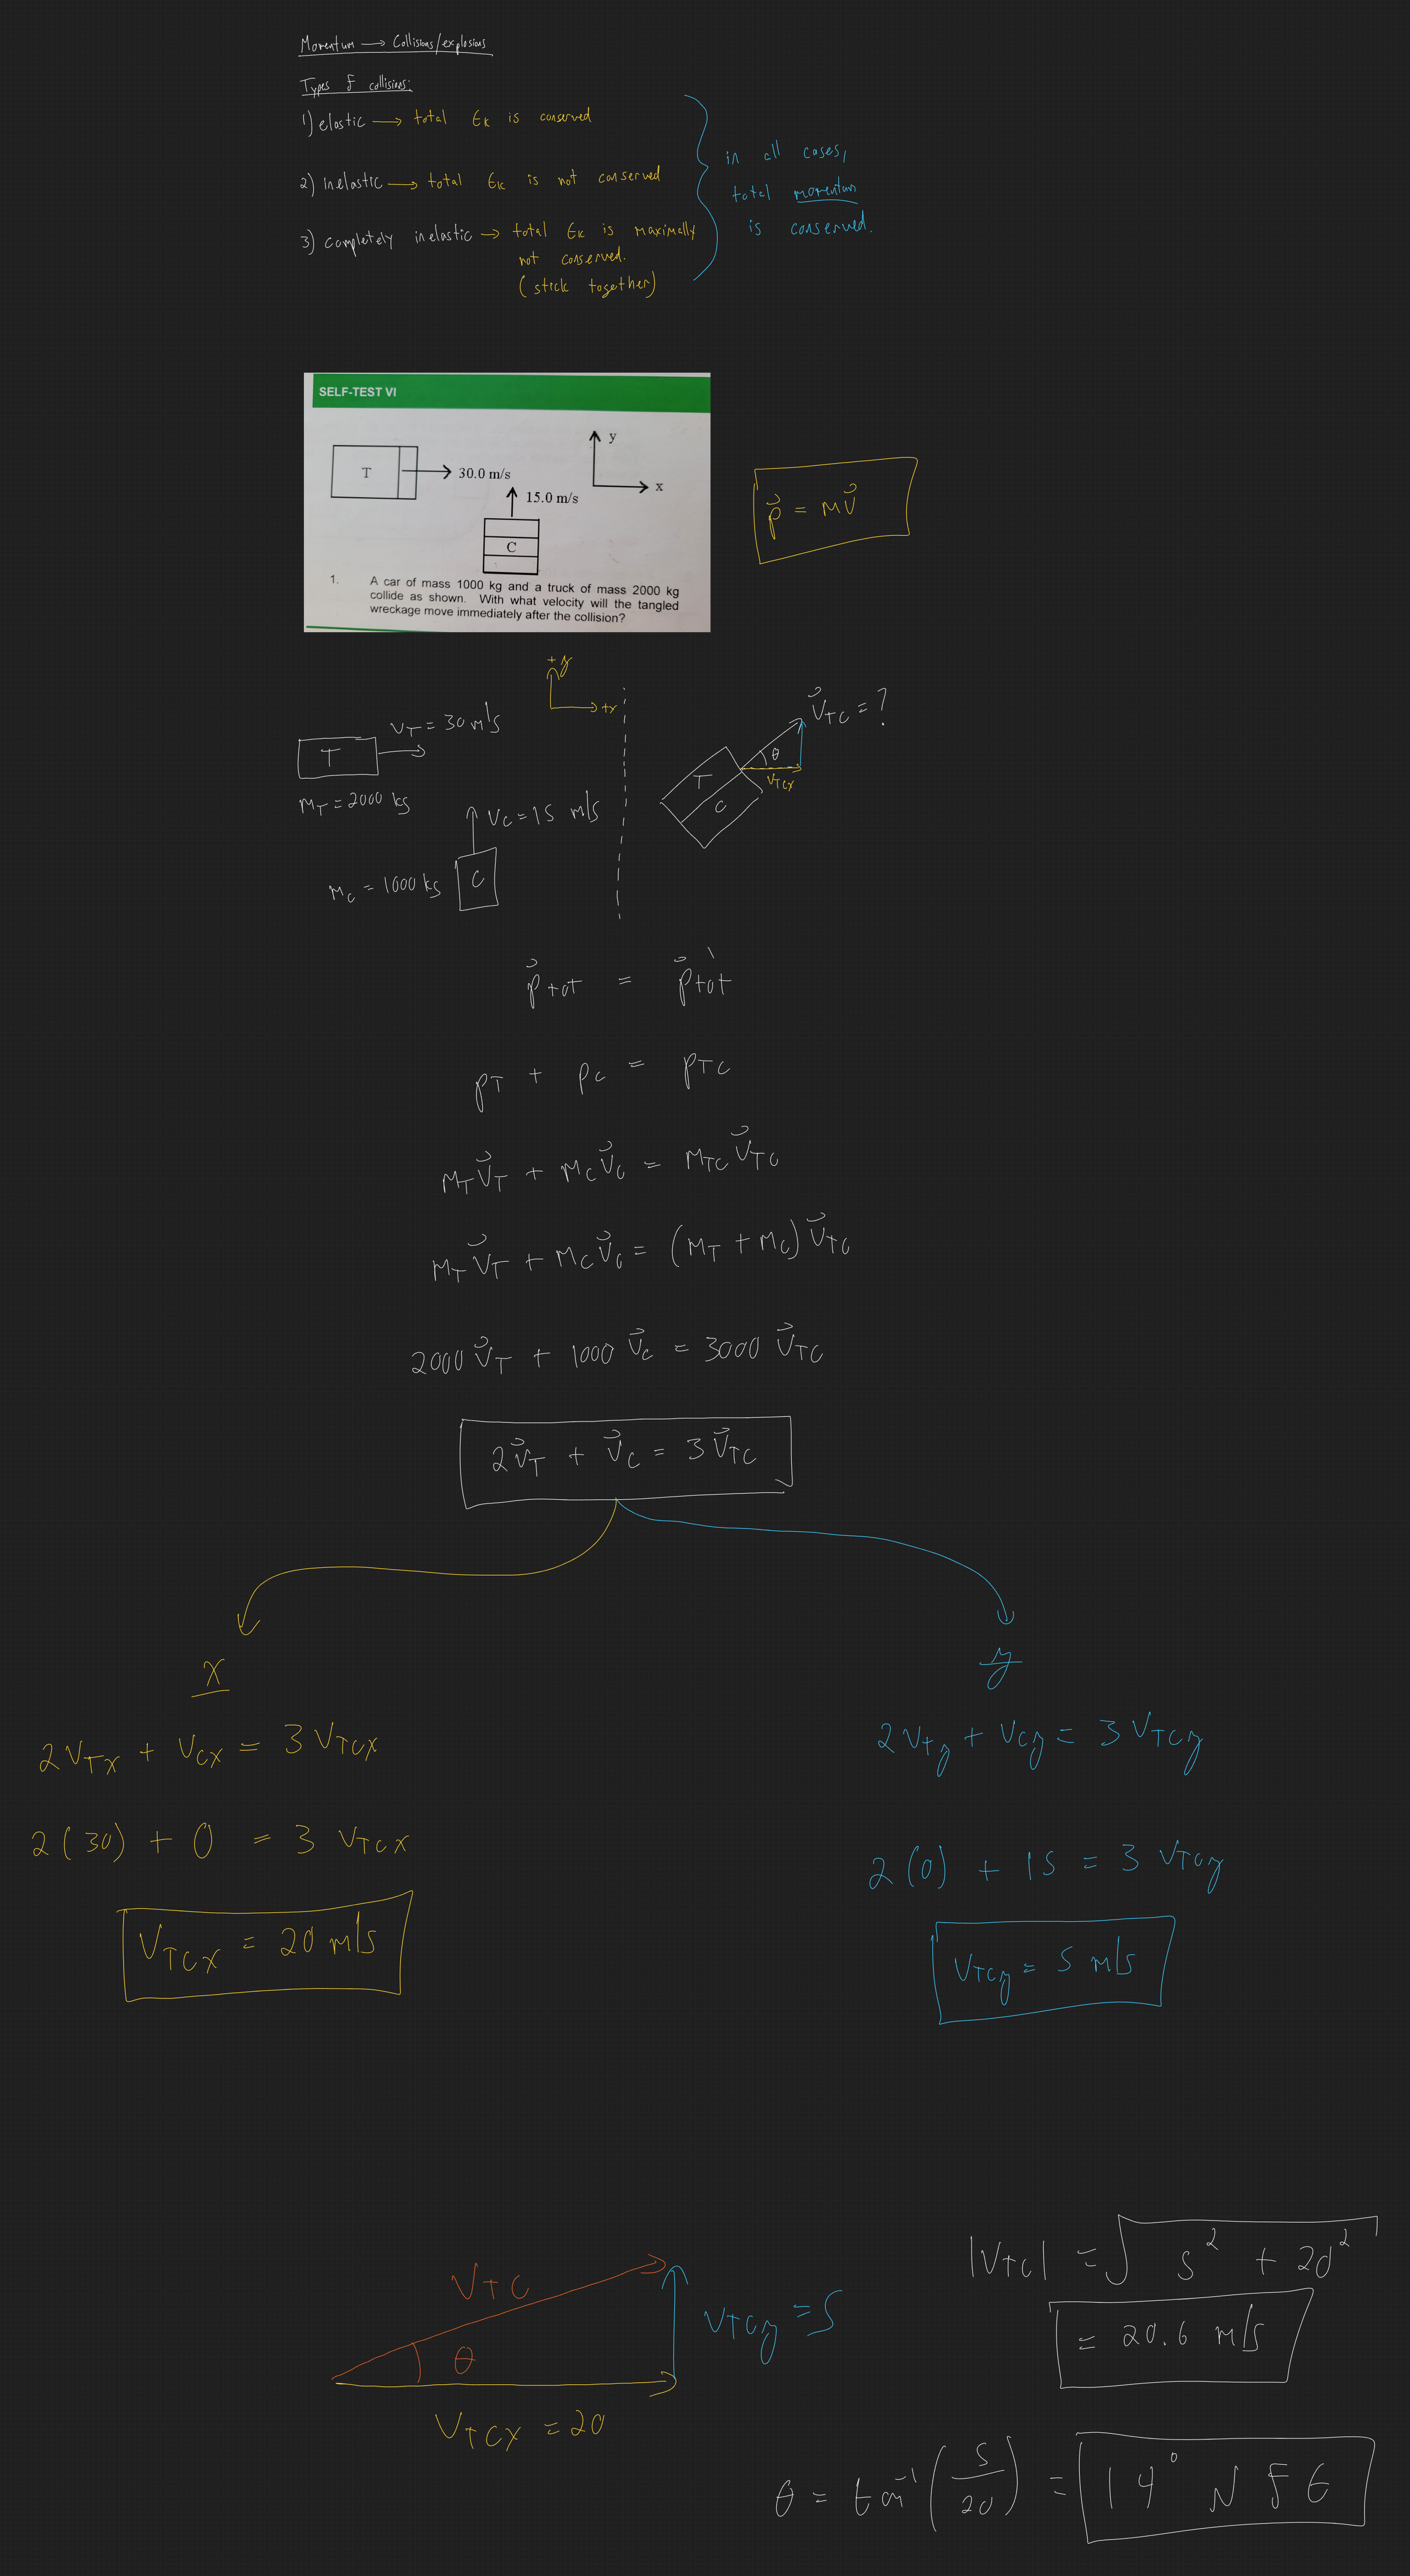 Momentum → Collisions/explosions
Types of collisions:
1) elastic → total Ek is conserved
2) inelastic → total Ek is not conserved
3) completely inelastic → total Ek is maximally
not conserved.
(stick together)
in all cases,
total momentum
is conserved.
SELF-TEST VI
T
30.0 m/s
y
x
15.0 m/s
C
1. A car of mass 1000 kg and a truck of mass 2000 kg
collide as shown. With what velocity will the tangled
wreckage move immediately after the collision?
p⃗ = mv⃗
+y
+x
T
vT = 30 m/s
mT = 2000 kg
vC = 15 m/s
mC = 1000 kg
C
v⃗TC = ?
θ
vTCx
T
C
p⃗tot = p⃗tot'
pT + pC = pTC
mT v⃗T + mC v⃗C = mTC v⃗TC
mT v⃗T + mC v⃗C = (mT + mC) v⃗TC
2000 v⃗T + 1000 v⃗C = 3000 v⃗TC
2v⃗T + v⃗C = 3 v⃗TC
x
2vTx + vCx = 3 vTCx
2(30) + 0 = 3 vTCx
vTCx = 20 m/s
y
2vTy + vCy = 3 vTCy
2(0) + 15 = 3 vTCy
vTCy = 5 m/s
vTC
θ
vTCy = 5
vTCx = 20
|vTC| = √5² + 20²
= 20.6 m/s
θ = tan⁻¹(5/20) = 14° N of E